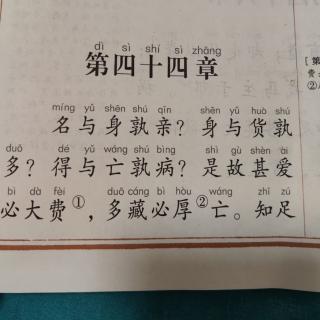 dì sì shí sì zhāng
第四十四章
míng yǔ shēn shú qīn shēn yǔ huò shú
名与身孰亲？身与货孰
duō dé yǔ wáng shú bìng shì gù shèn ài
多？得与亡孰病？是故甚爱
bì dà fèi duō cáng bì hòu wáng zhī zú
必大费①，多藏必厚②亡。知足
[第
费：
②